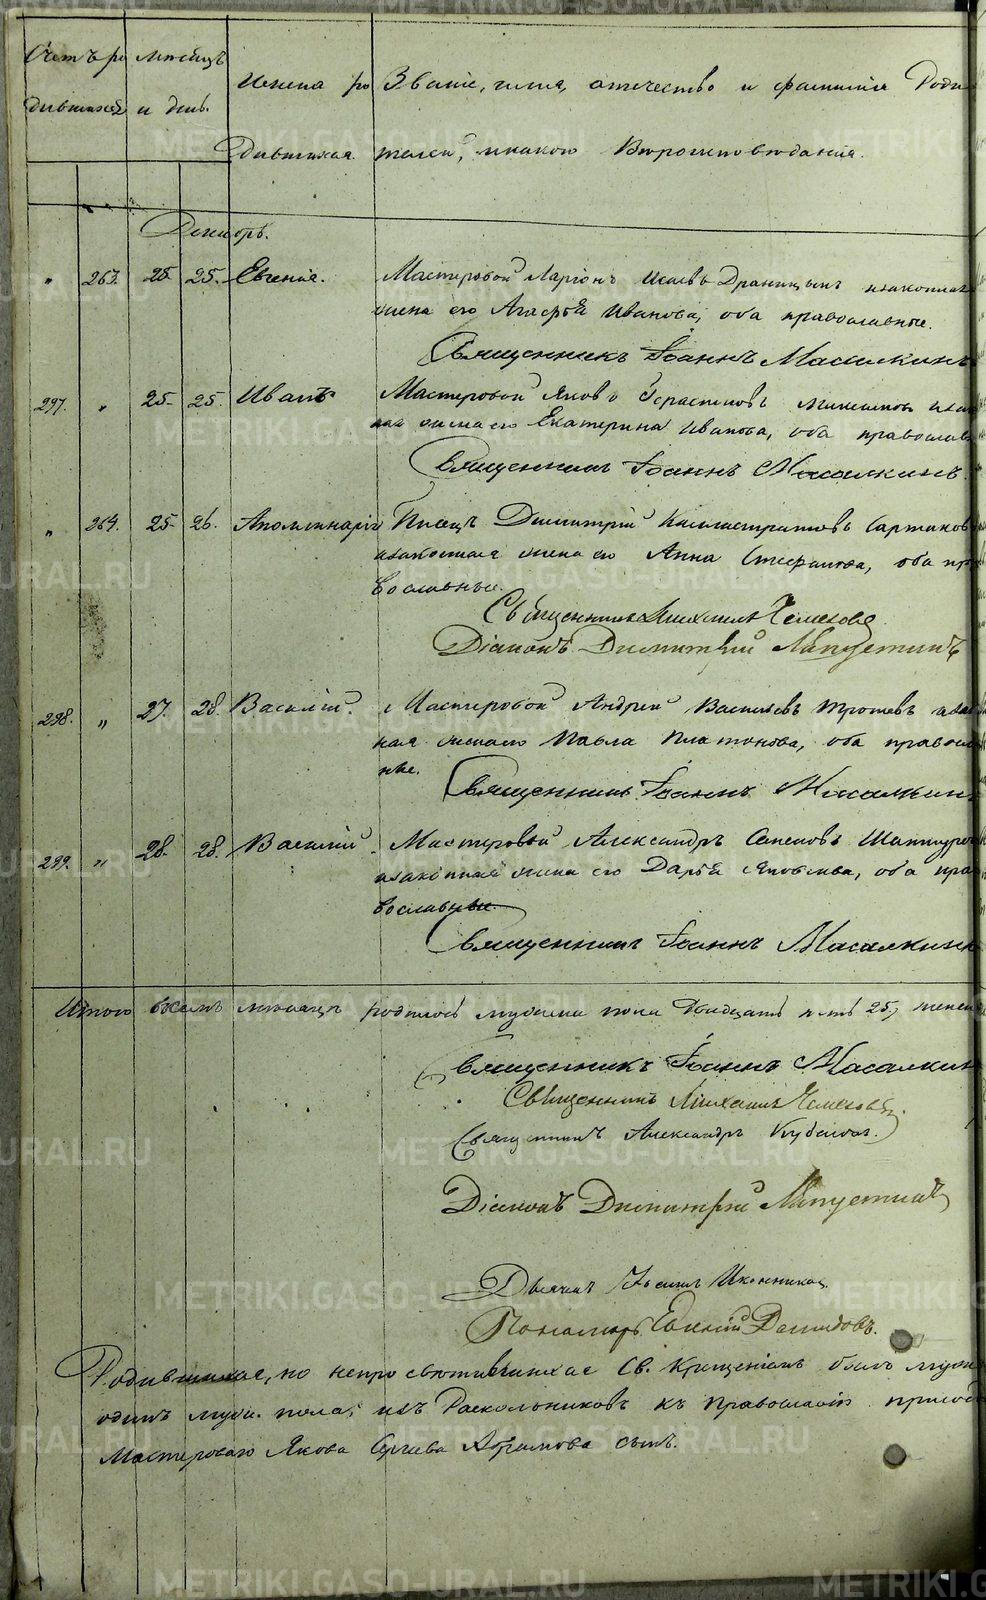 Счетъ ро мѣсяцъ
дившихся и день.
Имена ро Званіе, имя, отечество и фамилія Роди
дившихся. телей, и какого Вѣроисповѣданія.
Декабрь.
" 263. 25. 25. Евгенія. Мастеровой Ларіонъ Исаевъ изаконная
жена его Агафья Иванова, оба православные.
Священникъ Іоаннъ Масалкинъ
297. " 25. 25. Иванъ. Мастеровой Яковъ Герасимовъ изакон
ная жена его Екатерина Иванова, оба православ
Священникъ Іоаннъ Масалкинъ.
" 264. 25. 26. Аполлинарія Писецъ Димитрій Каллистратовъ
изаконная жена его Анна Стефанова, оба пр
вославные.
Священникъ Михаилъ
Діаконъ Димитрій Лапустинъ
298. " 27. 28. Василій. Мастеровой Андрей Васильевъ изакон
ная жена его Павла Платонова, оба правосл
ные.
Священникъ Іоаннъ Масалкинъ
299. " 28. 28. Василій. Мастеровой Александръ Семеновъ
изаконная жена его Дарья Яковлева, оба пра
вославные.
Священникъ Іоаннъ Масалкинъ
Итого въ семъ мѣсяцѣ родилось мужеска пола Двадцать пять 25, женск
Священникъ Іоаннъ Масалкинъ
Священникъ Михаилъ
Священникъ Александръ
Діаконъ Димитрій Лапустинъ
Дьячекъ Иконниковъ.
Пономарь Евгеній Демидовъ.
Родившихся, но непросвѣтившихся Св. Крещеніемъ былъ
одинъ муж. пола, изъ Раскольниковъ къ православію
Мастероваго Якова Сергѣева Абрамова сынъ.
METRIKI.GASO-URAL.RU